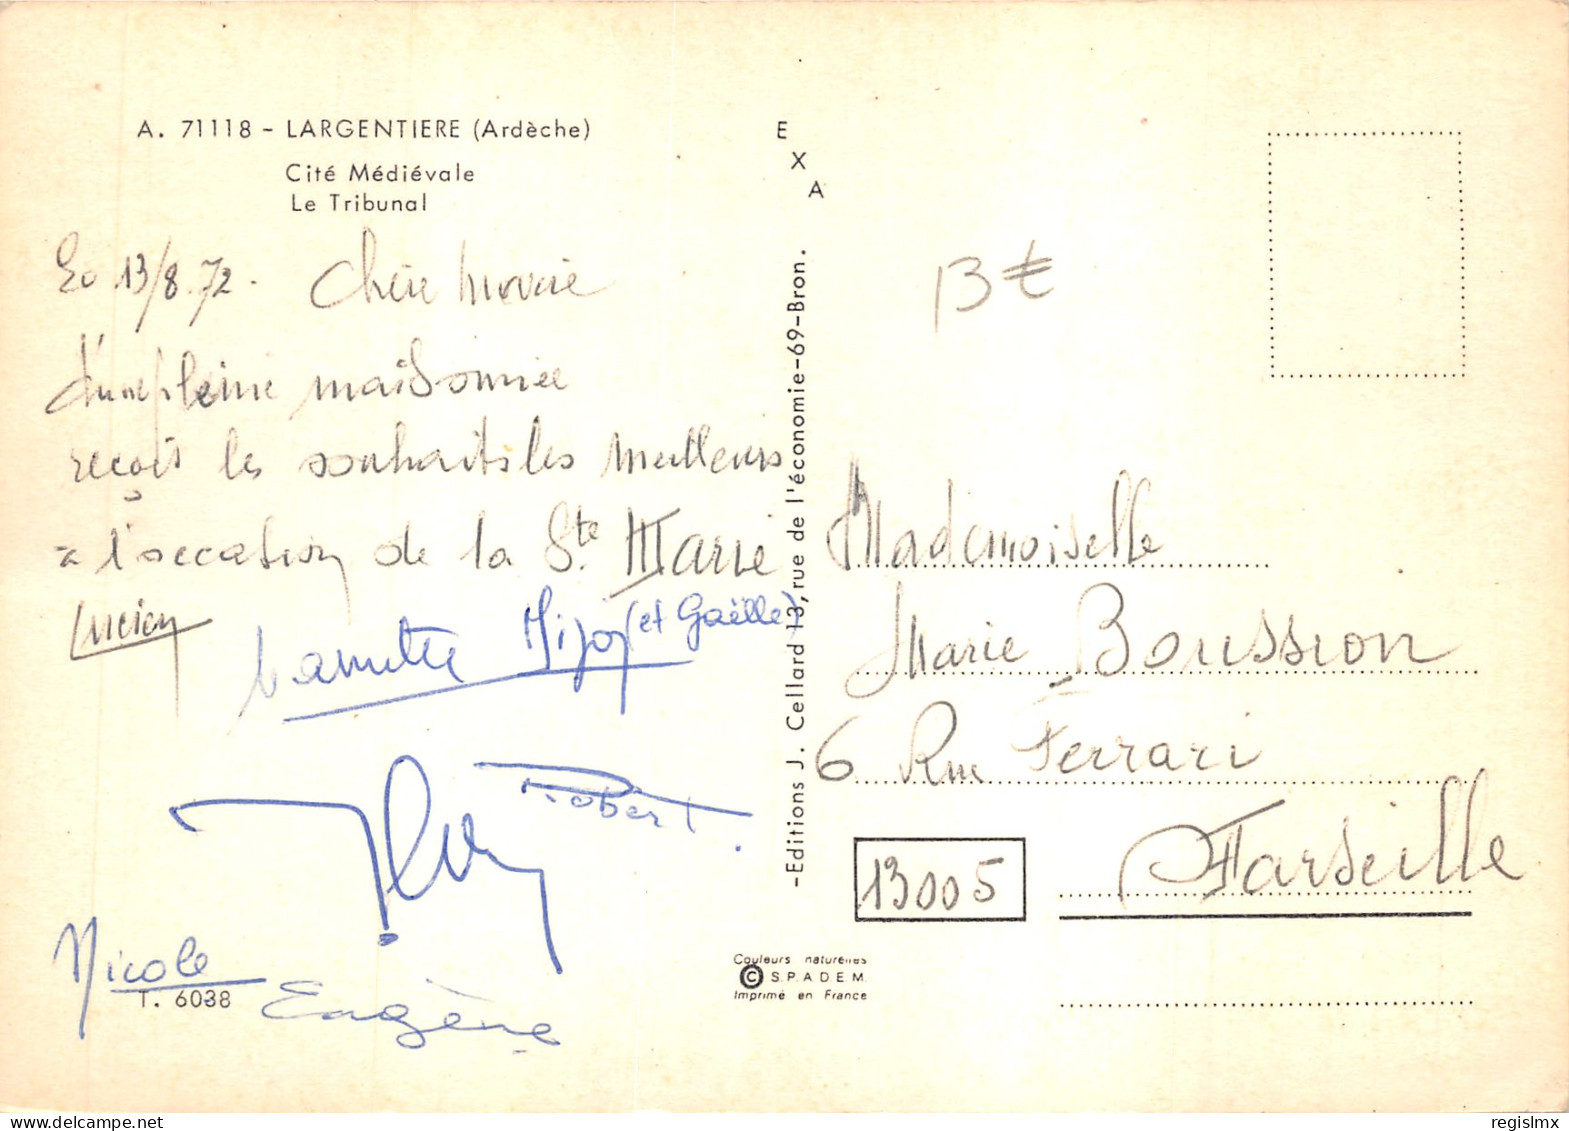 A. 71118 - LARGENTIERE (Ardèche)
Cité Médiévale
Le Tribunal
13/8.72. Chère
d'une pleine maisonnée
reçois les souhaits les meilleurs
à l'occasion de la Ste Marie
Lucien
Mijo (et Gaëlle)
Robert.
Nicole
T. 6038
Eugène
E
X
A
-Editions J. Cellard 13, rue de l'économie-69-Bron.
Couleurs naturelles
© S.P.A.D.E.M.
Imprimé en France
13 €
Mademoiselle
Marie Boussion
6 Rue Ferrari
13005 Marseille
regislmx